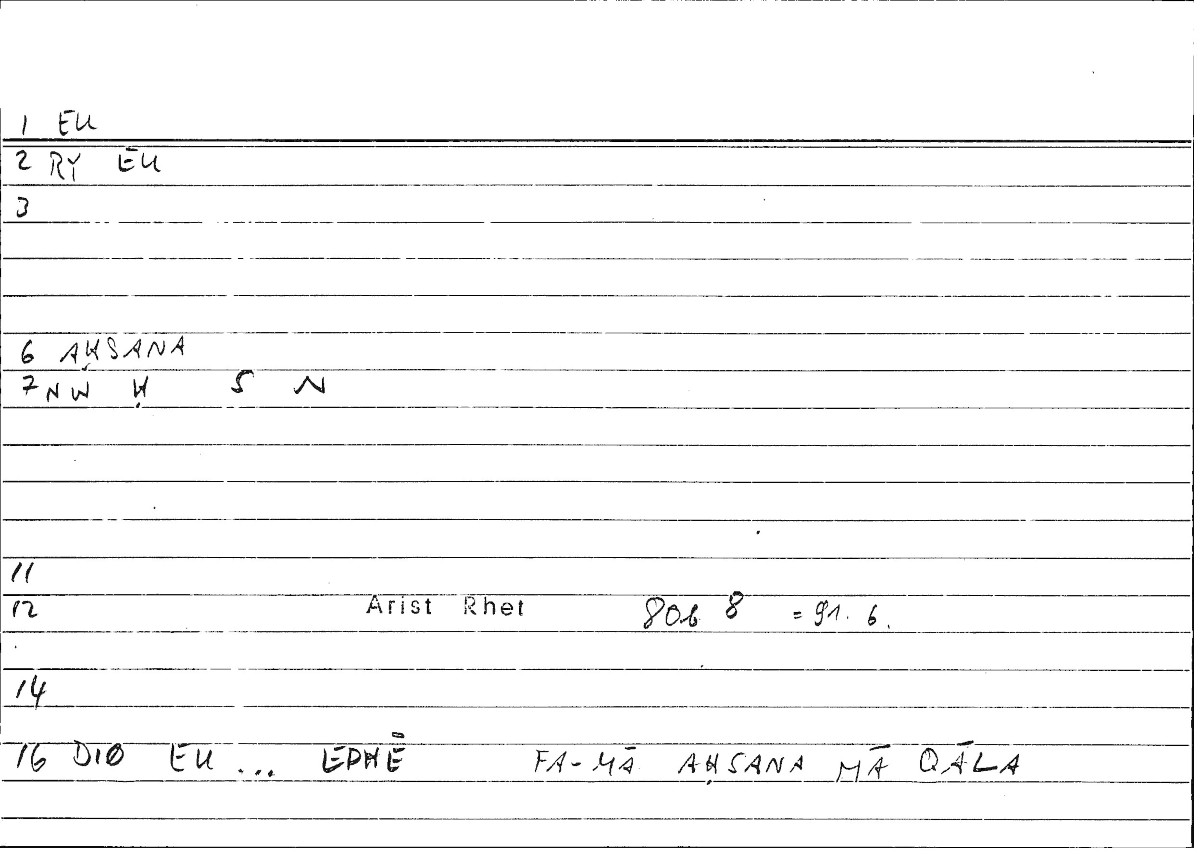 1 EU
2 RY EU
3
6 AḤSANA
7 NW Ḥ S N
11
12 Arist Rhet 80b 8 = 91. 6.
14
16 DIO EU ... EPHĒ FA-MĀ AḤSANA MĀ QĀLA